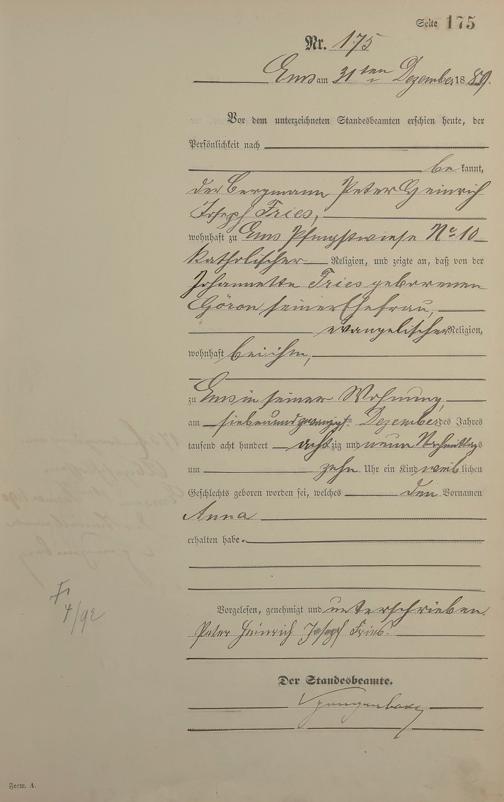 Seite 175
Nr. 175
Ems am 31ten Dezember 1889.
Vor dem unterzeichneten Standesbeamten erschien heute, der
Persönlichkeit nach
bekannt,
der Bergmann Peter Heinrich
Joseph Fries,
wohnhaft zu Ems Pfingstwiese No 10
katholischer Religion, und zeigte an, daß von der
Johannette Fries geborenen
Göron, seiner Ehefrau,
evangelischer Religion,
wohnhaft bei ihm,
zu Ems in seiner Wohnung,
am siebenundzwanzigst. Dezember des Jahres
tausend acht hundert achtzig und neun Vormittags
um zehn Uhr ein Kind weiblichen
Geschlechts geboren worden sei, welches den Vornamen
Anna
erhalten habe.
Vorgelesen, genehmigt und unterschrieben
Peter Heinrich Joseph Fries.
Der Standesbeamte.
4/92
Form. A.